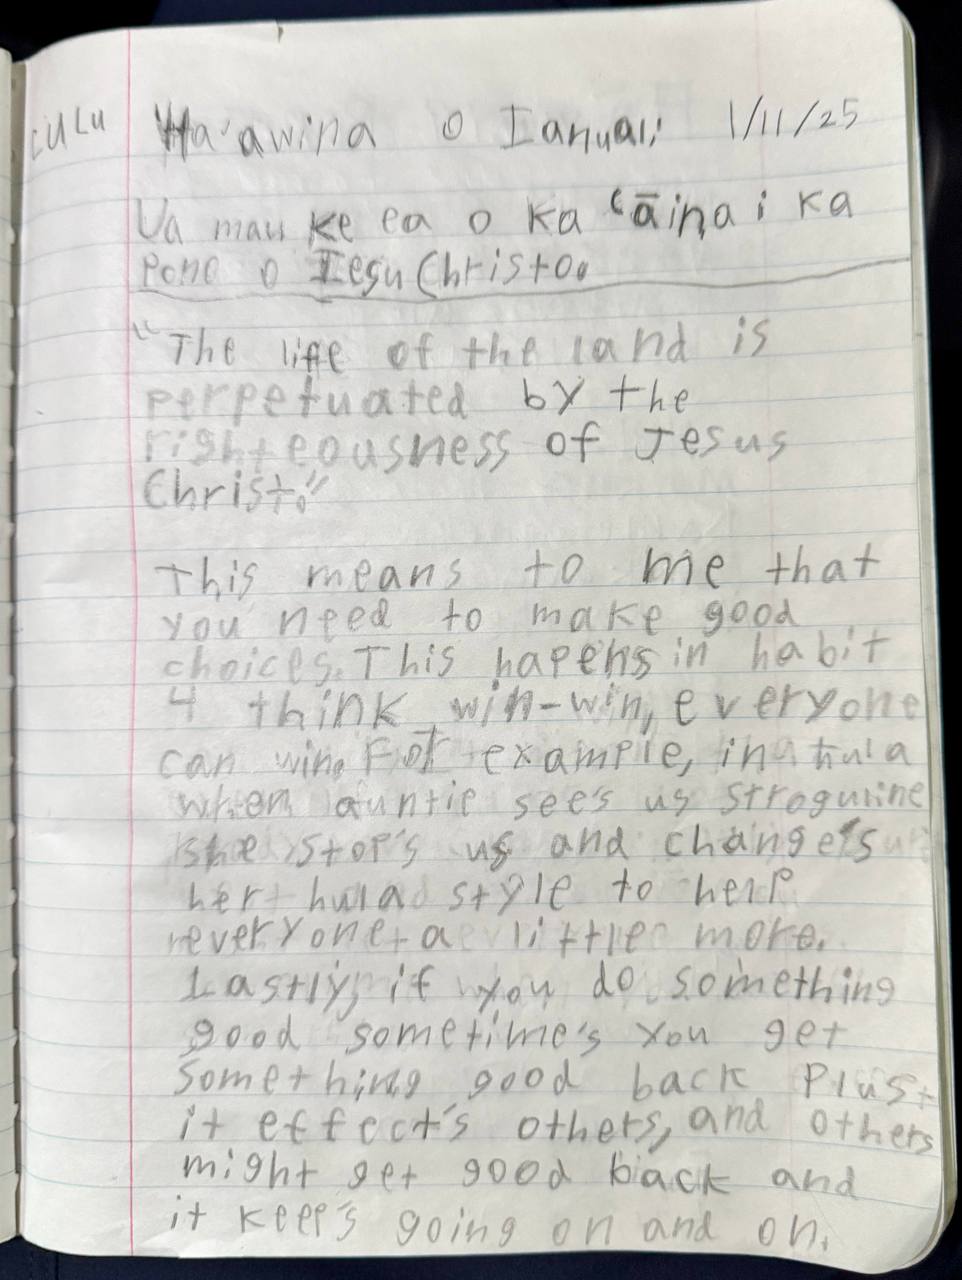 LULU Ha'awina o Ianuali 1/11/25
Ua mau ke ea o ka ʻāina i ka
pono o Iesu Christo.
"The life of the land is
perpetuated by the
righteousness of Jesus
Christ."
This means to me that
you need to make good
choices. This hapens in habit
4 think win-win, everyone
can win. For example, in a hula
when auntie see's us strogurine
she stop's us and change's
her hula style to help
everyone a little more.
Lastly, if you do something
good sometime's you get
something good back Plus
it effect's others, and others
might get good back and
it keep's going on and on.